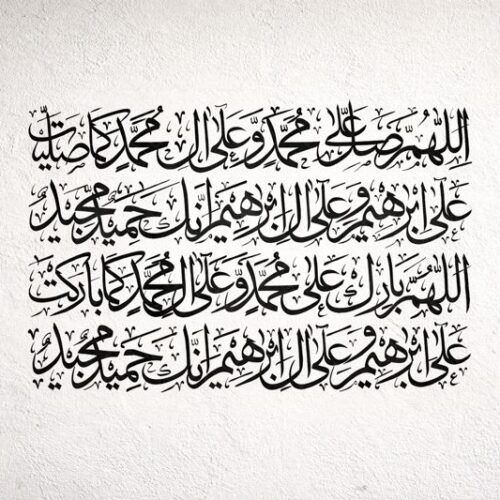 اللهم صل على محمد وعلى آل محمد كما صليت
على ابرهيم وعلى آل ابرهيم انك حميد مجيد
اللهم بارك على محمد وعلى آل محمد كما باركت
على ابرهيم وعلى آل ابرهيم انك حميد مجيد